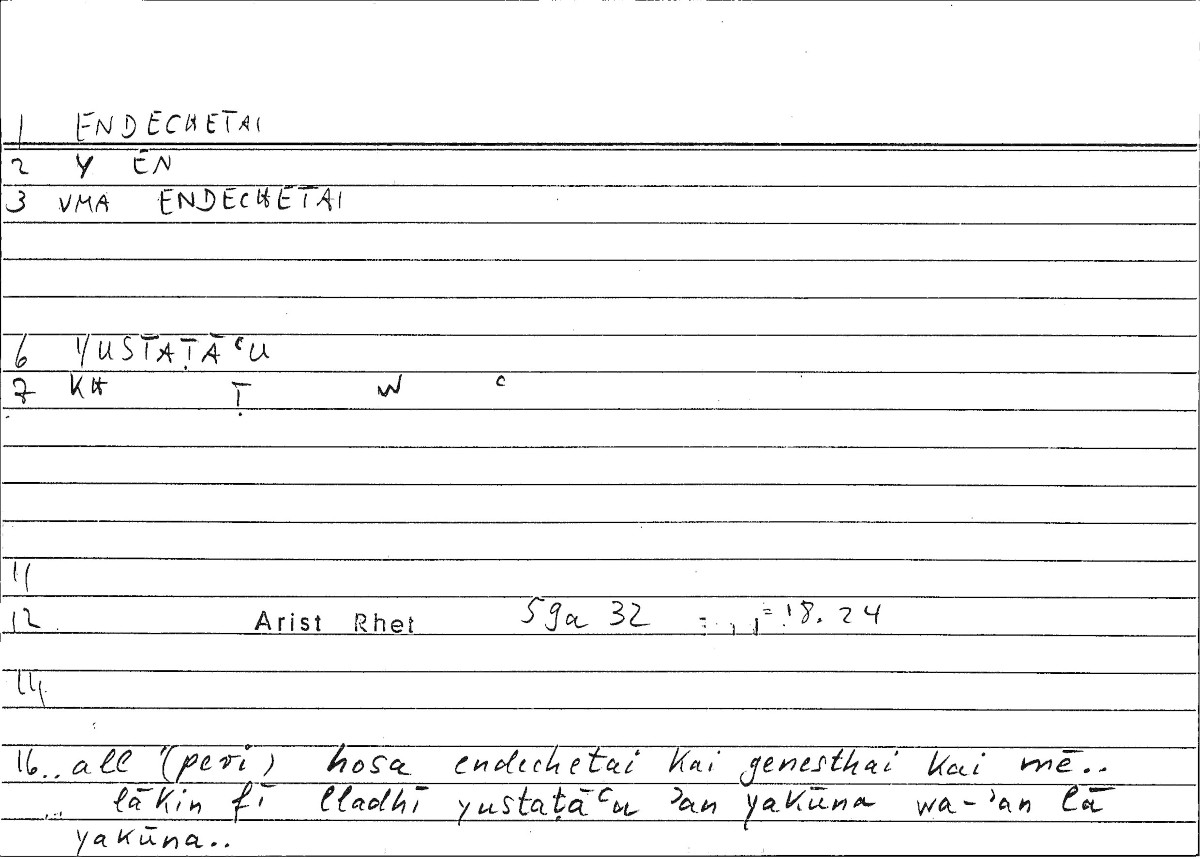 1 ENDECHETAI
2 Y EN
3 VMA ENDECHETAI
6 YUSTAṬĀʿU
7 KH Ṭ W ʿ
11
12 Arist Rhet 59a 32 = 18.24
14
16.. all' (peri) hosa endechetai kai genesthai kai mē..
lākin fī lladhī yustaṭāʿu ʾan yakūna wa-ʾan lā
yakūna..